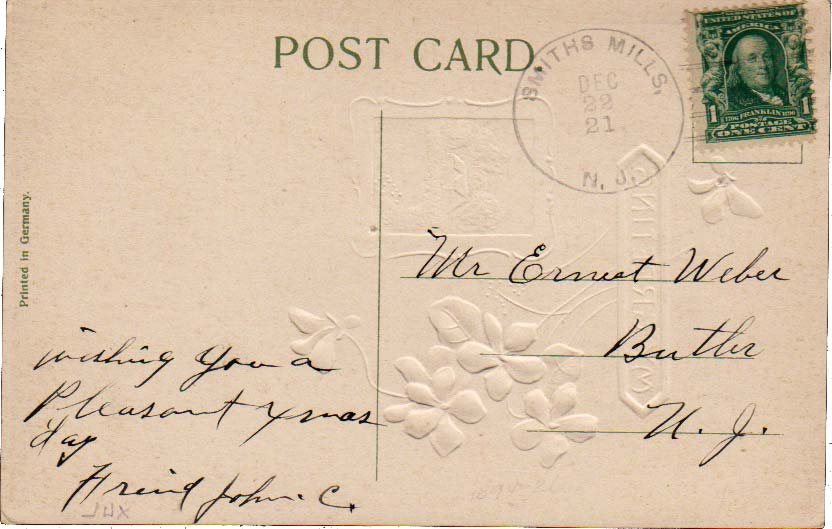 POST CARD
SMITHS MILLS,
DEC
22
21
N. J.
UNITED STATES OF
AMERICA
1 1706 FRANKLIN 1790 1
POSTAGE
ONE CENT
Printed in Germany.
Mr Ernest Weber
Butler
N. J.
wishing you a
Pleasant Xmas
day
Freind John. C.